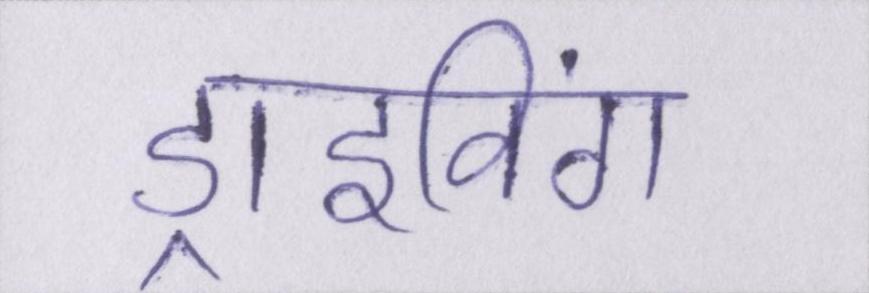 ड्राइविंग